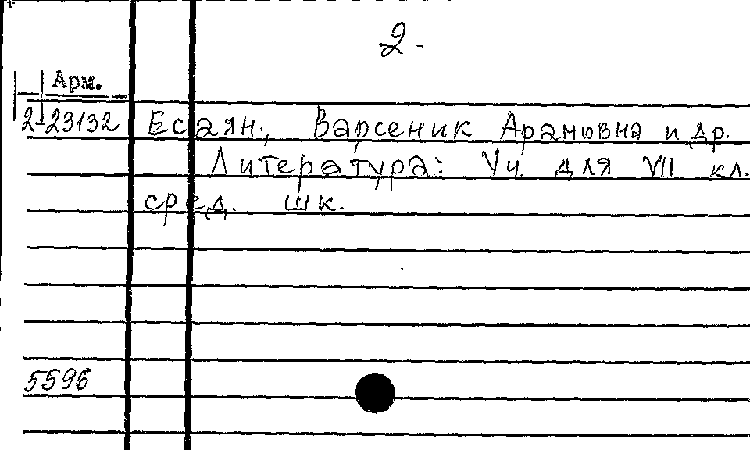 2-
Арм.
2-23132 Есаян, Варсеник Арамовна и др.
Литература: Уч. для VII кл.
сред. шк.
5596